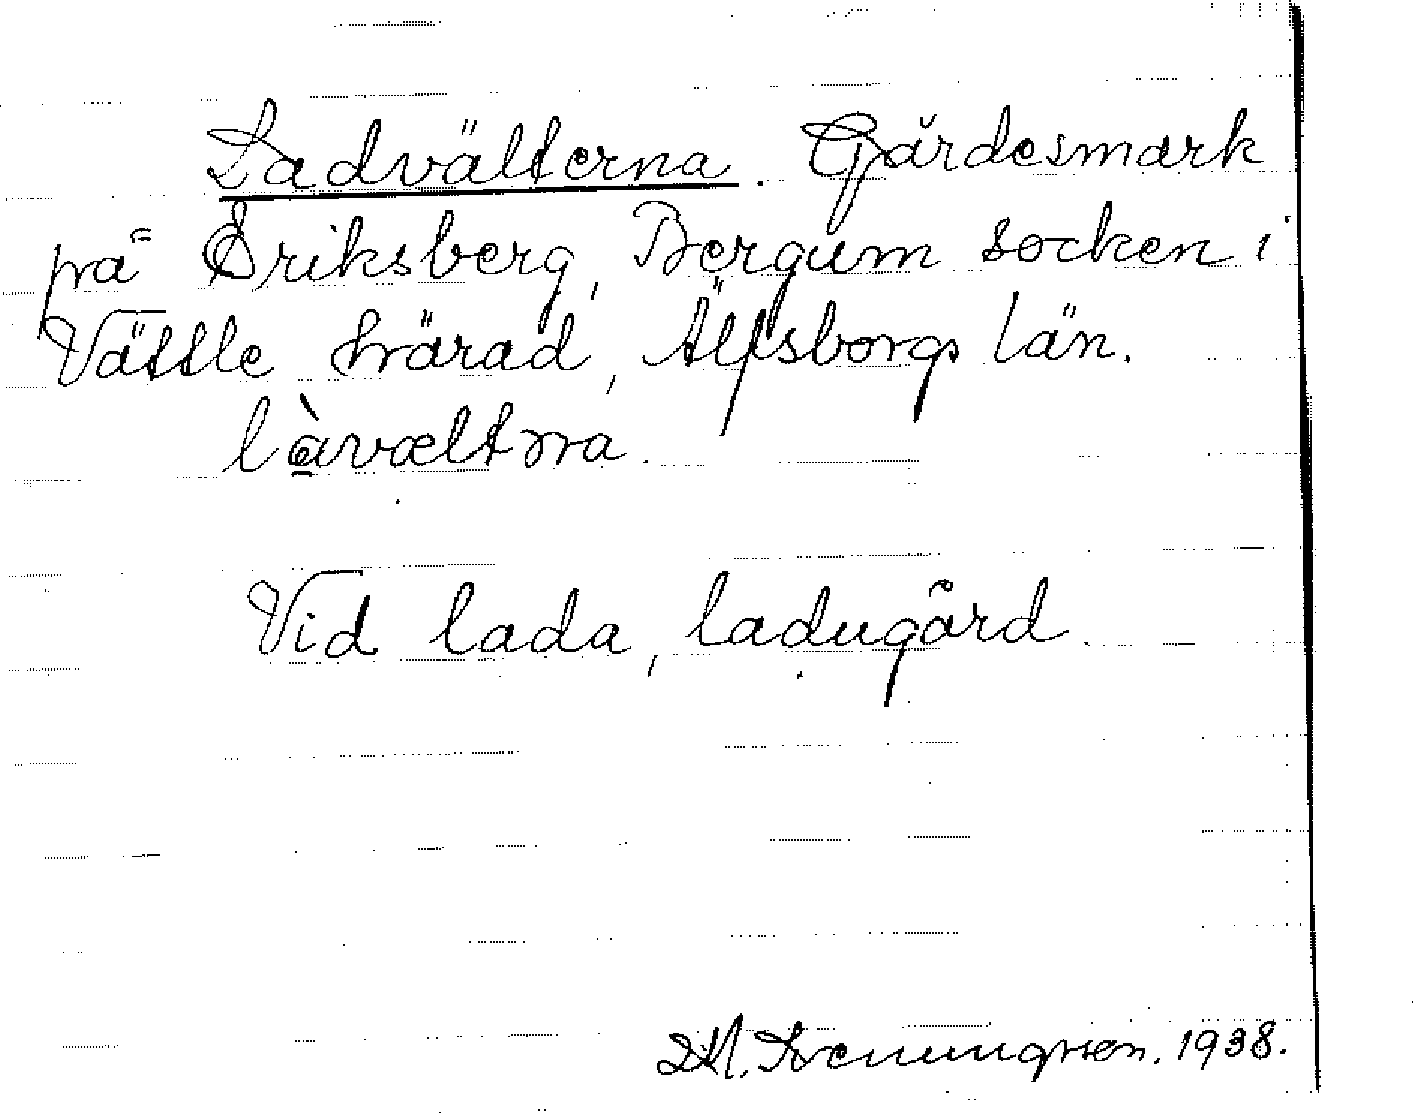 Ladvälterna. Gärdesmark
på Eriksberg, Bergum socken i
Vättle härad, Älfsborgs län.
làvæltɔra
Vid lada, ladugård.
1938.